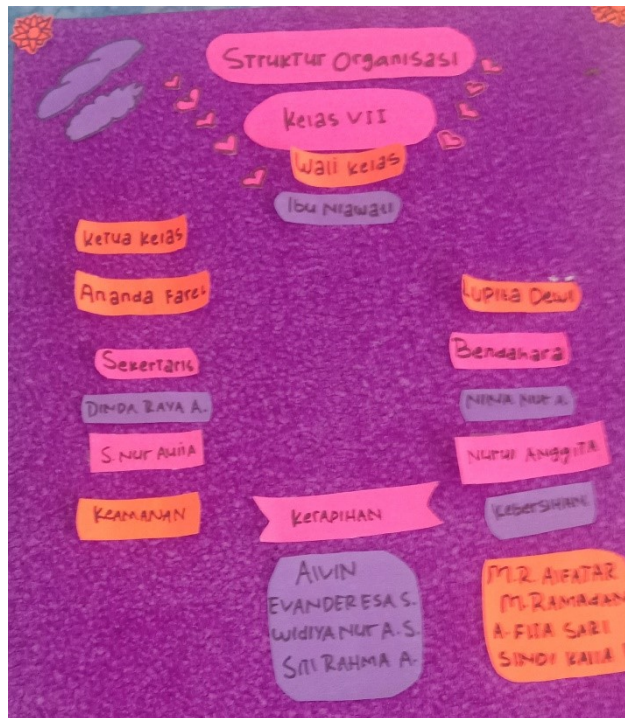 Struktur Organisasi
Kelas VII
Wali Kelas
Ibu Niawati
Ketua Kelas
Ananda Farel
Lupita Dewi
Sekertaris
Bendahara
DINDA RAYA A.
NINA NUR A.
S. NUR AULIA
NURUL ANGGITA
KEAMANAN
KERAPIHAN
KEBERSIHAN
ALVIN
EVANDER ESA S.
WIDIYA NUR A. S.
SITI RAHMA A.
M.R. ALFATAR
M. RAMADAN
A. FITA SARI
SINDI KALLA